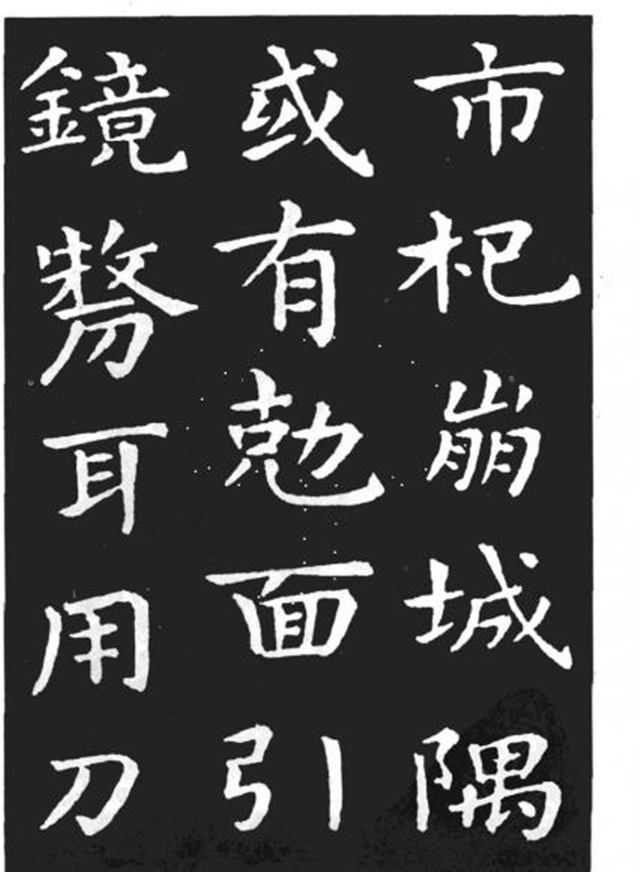 市杞崩城隅
或有勊面引
鏡剺耳用刀